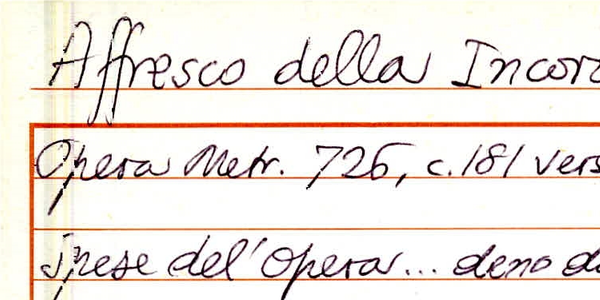 Affresco della Incor
Opera Metr. 726, c. 181 vers
Spese del'Opera... deno da